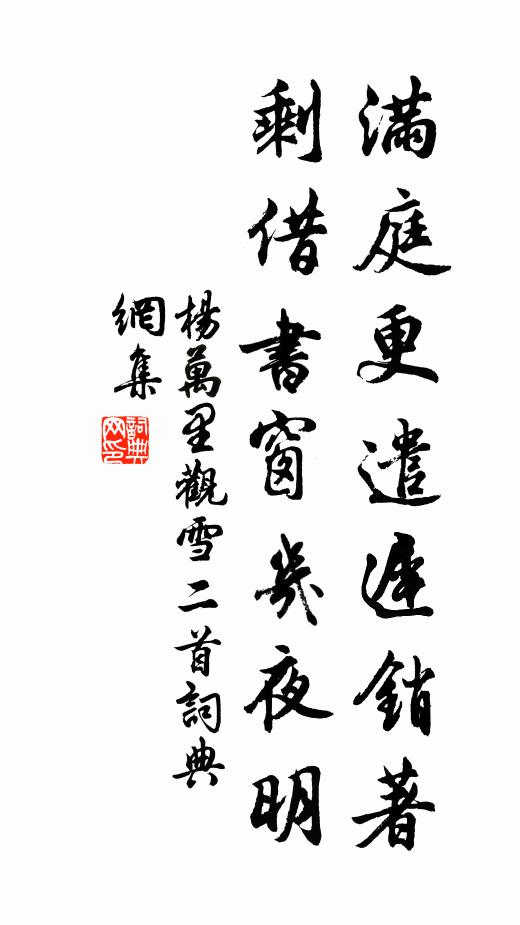 滿庭更遣遲銷著
剩借書窗幾夜明
楊萬里觀雪二首詞典
網集
詞典
网印